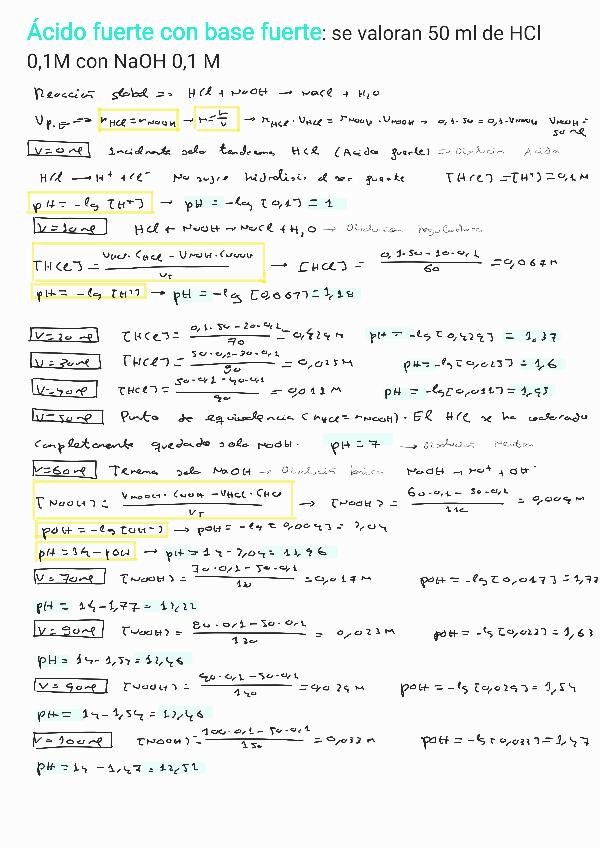 Ácido fuerte con base fuerte: se valoran 50 ml de HCl
0,1M con NaOH 0,1 M
Reacción global => HCl + NaOH → NaCl + H₂O
V p.E => nHCl = nNaOH → M = n/V → MHCl · VHCl = MNaOH · VNaOH → 0,1·50 = 0,1·VNaOH VNaOH = 50 ml
V = 0 ml Inicialmente solo tendremos HCl (Ácido fuerte) → Disolución Ácida
HCl → H⁺ + Cl⁻ No sufre hidrólisis al ser fuerte [HCl] = [H⁺] = 0,1 M
pH = -log [H⁺] → pH = -log [0,1] = 1
V = 10 ml HCl + NaOH → NaCl + H₂O → Disolución
[HCl] = (VHCl · CHCl - VNaOH · CNaOH) / VT → [HCl] = (0,1·50 - 10·0,1) / 60 = 0,067 M
pH = -log [H⁺] → pH = -log [0,067] = 1,18
V = 20 ml [HCl] = (0,1·50 - 20·0,1) / 70 = 0,429 M pH = -log [0,429] = 1,37
V = 30 ml [HCl] = (50·0,1 - 30·0,1) / 80 = 0,025 M pH = -log [0,025] = 1,6
V = 40 ml [HCl] = (50·0,1 - 40·0,1) / 90 = 0,011 M pH = -log [0,011] = 1,95
V = 50 ml Punto de equivalencia (nHCl = nNaOH). El HCl se ha valorado
completamente quedando solo NaOH. pH = 7 → Disolución Neutra
V = 60 ml Tenemos solo NaOH → Disolución básica NaOH → Na⁺ + OH⁻
[NaOH] = (VNaOH · CNaOH - VHCl · CHCl) / VT → [NaOH] = (60·0,1 - 50·0,1) / 110 = 0,009 M
pOH = -log [OH⁻] → pOH = -log [0,009] = 2,04
pH = 14 - pOH → pH = 14 - 2,04 = 11,96
V = 70 ml [NaOH] = (70·0,1 - 50·0,1) / 120 = 0,017 M pOH = -log [0,017] = 1,77
pH = 14 - 1,77 = 12,22
V = 80 ml [NaOH] = (80·0,1 - 50·0,1) / 130 = 0,023 M pOH = -log [0,023] = 1,63
pH = 14 - 1,54 = 12,46
V = 90 ml [NaOH] = (90·0,1 - 50·0,1) / 140 = 0,029 M pOH = -log [0,029] = 1,54
pH = 14 - 1,54 = 12,46
V = 100 ml [NaOH] = (100·0,1 - 50·0,1) / 150 = 0,033 M pOH = -log [0,033] = 1,47
pH = 14 - 1,47 = 12,52